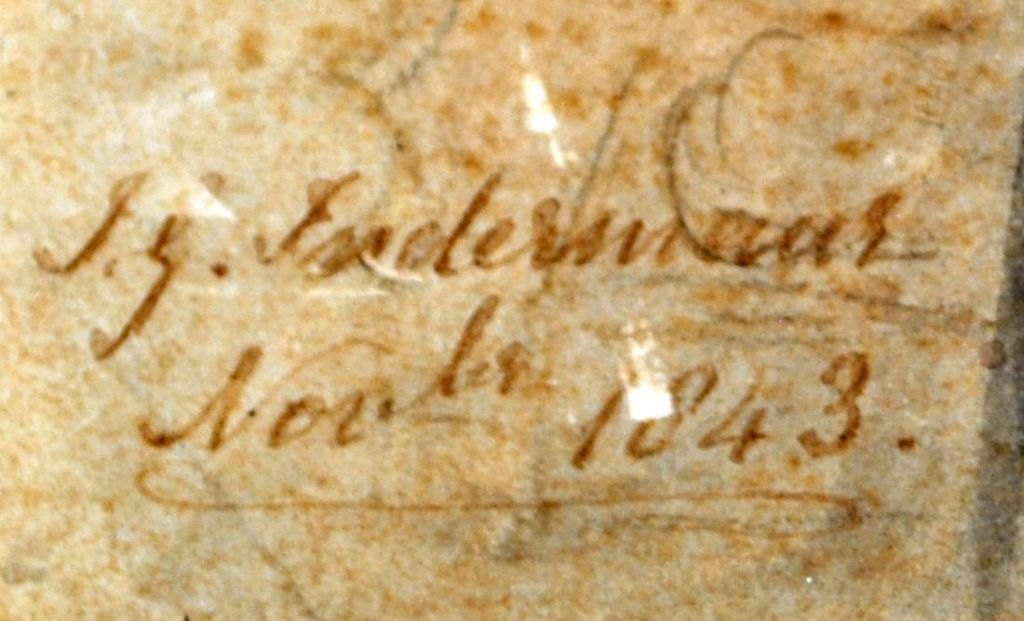 J. G. Indermaar
Nov.br 1843.